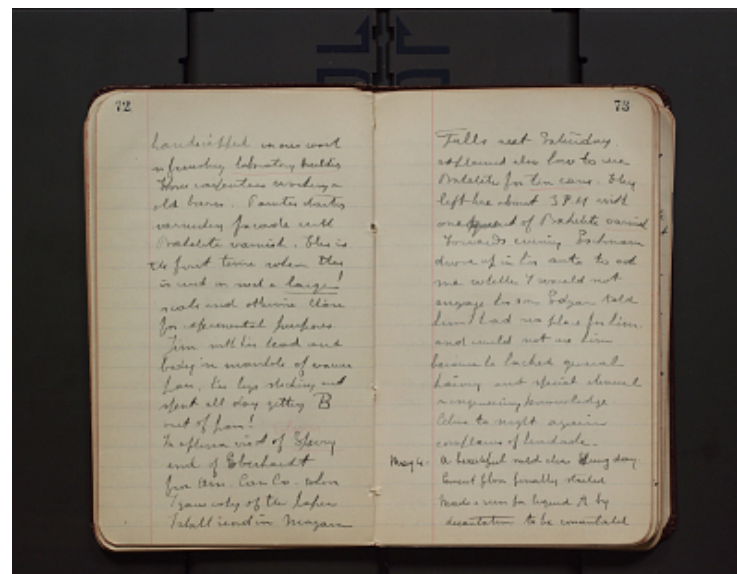 72
handicapped in our work
in finishing laboratory
Three carpenters working on
old barn. Painter started
varnishing facade with
Bakelite varnish. This is
the first time when this
is used in such a larger!
scale and otherwise than
for experimental purposes.
Jim with his head and
body in manhole of vacuum
pan, his legs sticking out
spent all day getting B
out of pan!
In afternoon visit of
and of Eberhardt
from Am. Can Co. whom
I gave copy of the paper
I shall read in Niagara
73
Falls next Saturday.
explained also how to use
Bakelite for tin cans. They
left here about 5 P.M with
one of Bakelite varnish
Towards evening
drove up in his auto to ask
me whether I would not
engage his son Edgar told
him I had no place for him.
and could not use him
because he lacked general
training and special chemical
engineering knowledge
Celine to night again
complains of headache.
May 4. A beautiful mild clear day.
Cement floor finally started
Made a run for liquid A by
decantation to be